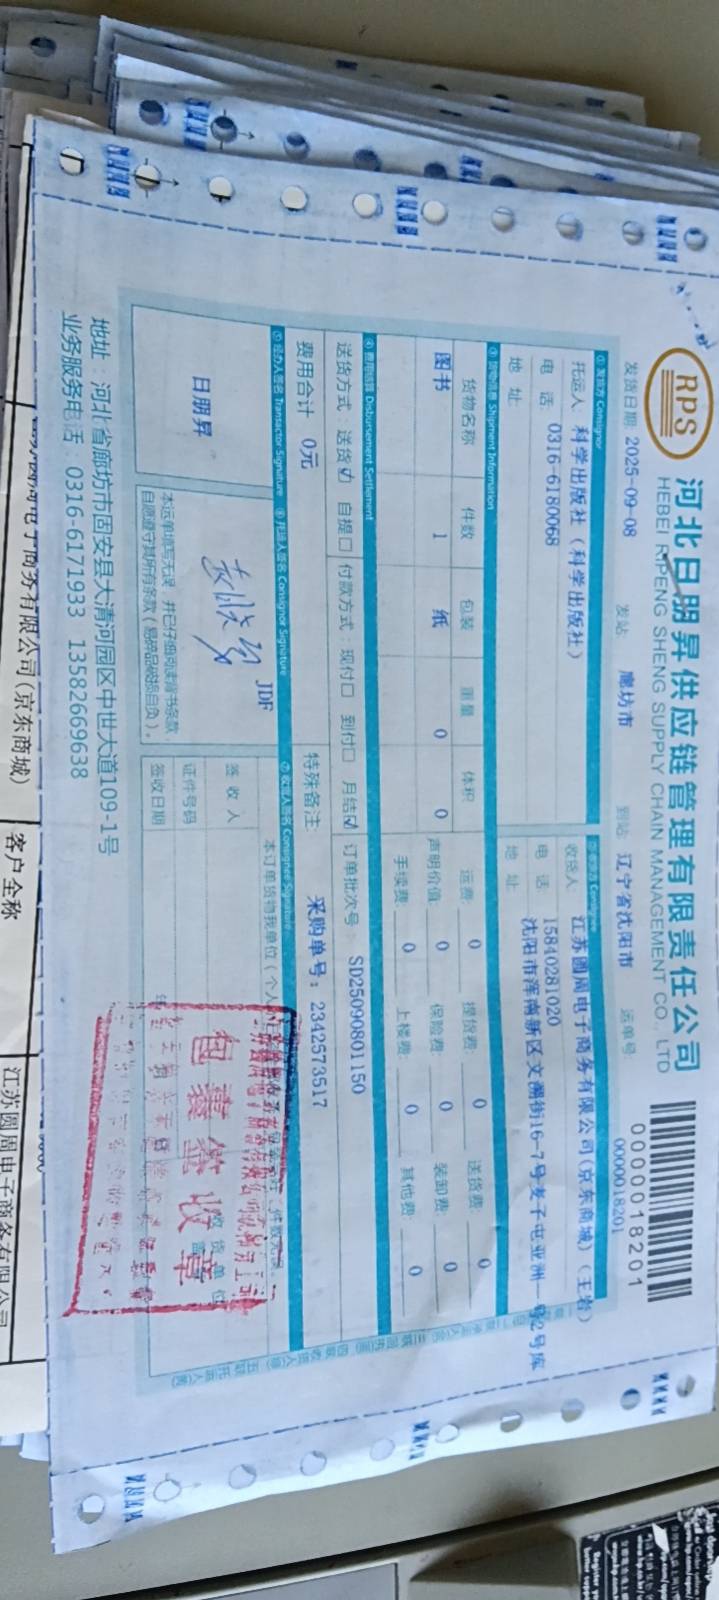 RPS
河北日朋昇供应链管理有限责任公司
HEBEI RIPENG SHENG SUPPLY CHAIN MANAGEMENT CO., LTD
0000018201
发货日期: 2025-09-08 发站: 廊坊市 到站: 辽宁省沈阳市 运单号: 0000018201
①发货方 Consignor
托运人: 科学出版社（科学出版社）
电 话: 0316-6180068
地 址:
收货人: 江苏圆周电子商务有限公司(京东商城)（王岩）
电 话: 15840281020
地 址: 沈阳市浑南新区文溯街16-7号麦子屯亚洲一号2号库
③货物信息 Shipment Information
货物名称 件数 包装 重量 体积
图书 1 纸 0 0
运费: 0 提货费: 0 送货费: 0
声明价值: 0 保险费: 0 装卸费: 0
手续费: 0 上楼费: 0 其他费: 0
④费用结算 Disbursement Settlement
送货方式: 送货☑ 自提□ 付款方式: 现付□ 到付□ 月结☑ 订单批次号: SD25090801150
费用合计 0元 特殊备注: 采购单号: 2342573517
⑤经办人签名 Transactor Signature ⑥托运人签名 Consignor Signature ⑦收货人签名 Consignee Signature
日朋昇
JDF
本运单填写无误，并已仔细阅读背书条款
自愿遵守其所有条款(易碎品破损自负)。
本订单货物我单位(个人)
签 收 人
证件号码
签收日期
包裹签收章
地址: 河北省廊坊市固安县大清河园区中世大道109-1号
业务服务电话: 0316-6171933 13582669638
电子商务有限公司(京东商城)
客户全称
江苏圆周电子商务有限公司